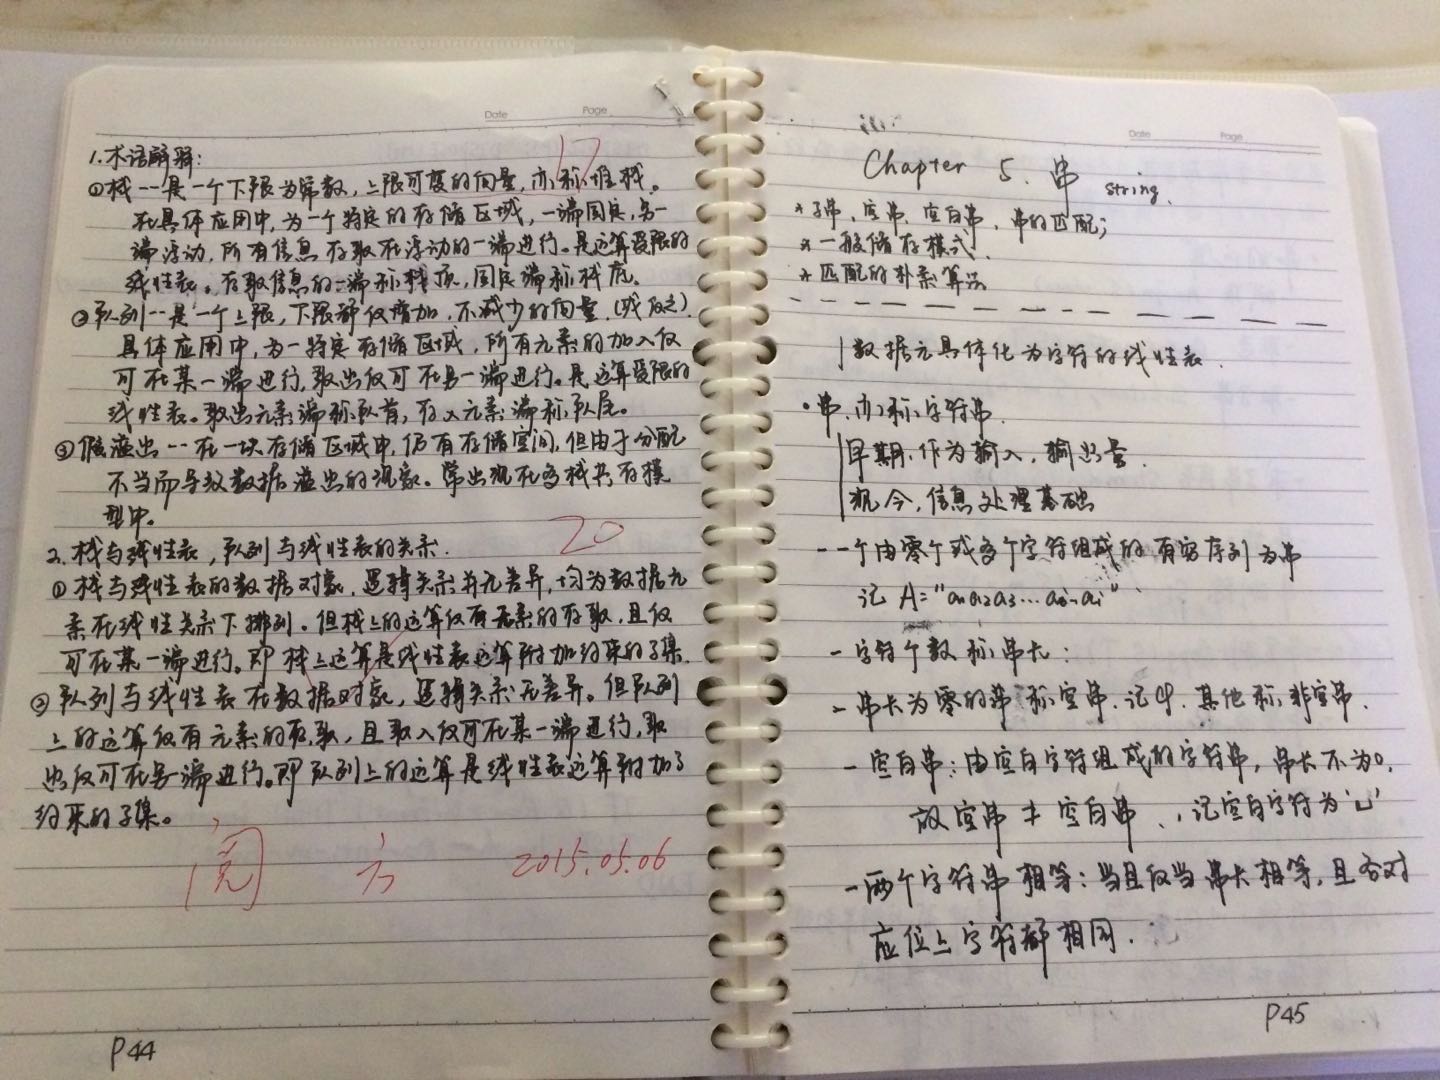 Date Page
17
1.术语解释:
①栈--是一个下限为常数,上限可变的向量,亦称堆栈。
在具体应用中,为一个特定的存储区域,一端固定,另一
端浮动,所有信息存取在浮动的一端进行。是运算受限的
线性表。存取信息的一端称栈顶,固定端称栈底。
②队列--是一个上限,下限都仅增加,不减少的向量.(或反之).
具体应用中,为一特定存储区域,所有元素的加入仅
可在某一端进行,取出仅可在另一端进行。是运算受限的
线性表。取出元素端称队首,存入元素端称队尾。
③假溢出--在一块存储区域中,仍有存储空间,但由于分配
不当而导致数据溢出的现象。常出现在多栈共存模
型中。
20
2.栈与线性表,队列与线性表的关系.
①栈与线性表的数据对象,逻辑关系并无差异,均为数据元
素在线性关系下排列。但栈上的运算仅有元素的存取,且仅
可在某一端进行。即栈上运算是线性表运算附加约束的子集.
②队列与线性表在数据对象,逻辑关系无差异。但队列
上的运算仅有元素的存取,且取入仅可在某一端进行,取
出仅可在另一端进行。即队列上的运算是线性表运算附加了
约束的子集。
阅 2015.05.06
P44
Date Page
Chapter 5. 串 string.
*子串,空串,空白串,串的匹配;
*一般储存模式.
*匹配的朴素算法
数据元具体化为字符的线性表.
·串,亦称字符串.
早期,作为输入,输出量.
现今,信息处理基础
-一个由零个或多个字符组成的有穷序列为串
记 A="a₁a₂a₃…aᵢ₋₁aᵢ"
-字符个数称串长;
-串长为零的串称空串.记φ.其他称非空串.
-空白串:由空白字符组成的字符串,串长不为0.
故空串≠空白串,记空白字符为'⊔'
-两个字符串相等:当且仅当串长相等,且各对
应位上字符都相同.
P45